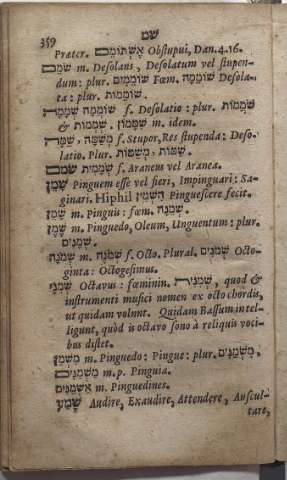 שמ
349
Præter. אֶשְׁתּוֹמַם Obstupui, Dan. 4. 16.
שֹׁמֵם m. Desolans, Desolatum vel stupen-
dum: plur. שׁוֹמֵמִים Fœm. שׁוֹמֵמָה Desola-
ta: plur. שׁוֹמֵמוֹת.
שְׁמָמָה שׁוֹמֵמָה f. Desolatio: plur. שְׁמָמוֹת
& שִׁמָּמוֹן. שִׁמְמוֹת m. idem.
שַׁמָּה, מְשַׁמָּה f. Stupor, Res stupenda: Deso-
latio. Plur. שַׁמּוֹת, מְשַׁמּוֹת.
שמם שְׂמָמִית f. Araneus vel Aranea.
שָׁמֵן Pinguem esse vel fieri, Impinguari: Sa-
ginari. Hiphil הִשְׁמִין Pinguescere fecit.
שָׁמֵן m. Pinguis: fœm. שְׁמֵנָה.
שֶׁמֶן m. Pinguedo, Oleum, Unguentum: plur.
שְׁמָנִים.
שְׁמֹנָה m. שְׁמֹנֶה f. Octo. Plural. שְׁמֹנִים Octo-
ginta: Octogesimus.
שְׁמִנִי Octavus: fœminin. שְׁמִנִית, quod &
instrumenti musici nomen ex octo chordis,
ut quidam volunt. Quidam Bassum intel-
ligunt, quòd is octavo sono à reliquis voci-
bus distet.
מִשְׁמַן m. Pinguedo: Pingue: plur. מִשְׁמַנִּים,
מַשְׁמַנִּים m. p. Pinguia.
אַשְׁמַנִּים m. Pinguedines.
שָׁמַע Audire, Exaudire, Attendere, Auscul-
tare,